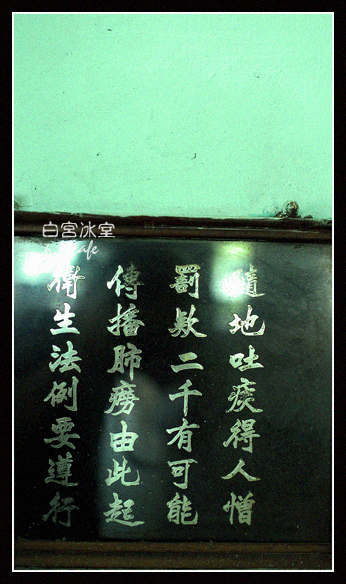 白宮冰室
Cafe
隨地吐痰得人憎
罰欵二千有可能
傳播肺癆由此起
衛生法例要遵行